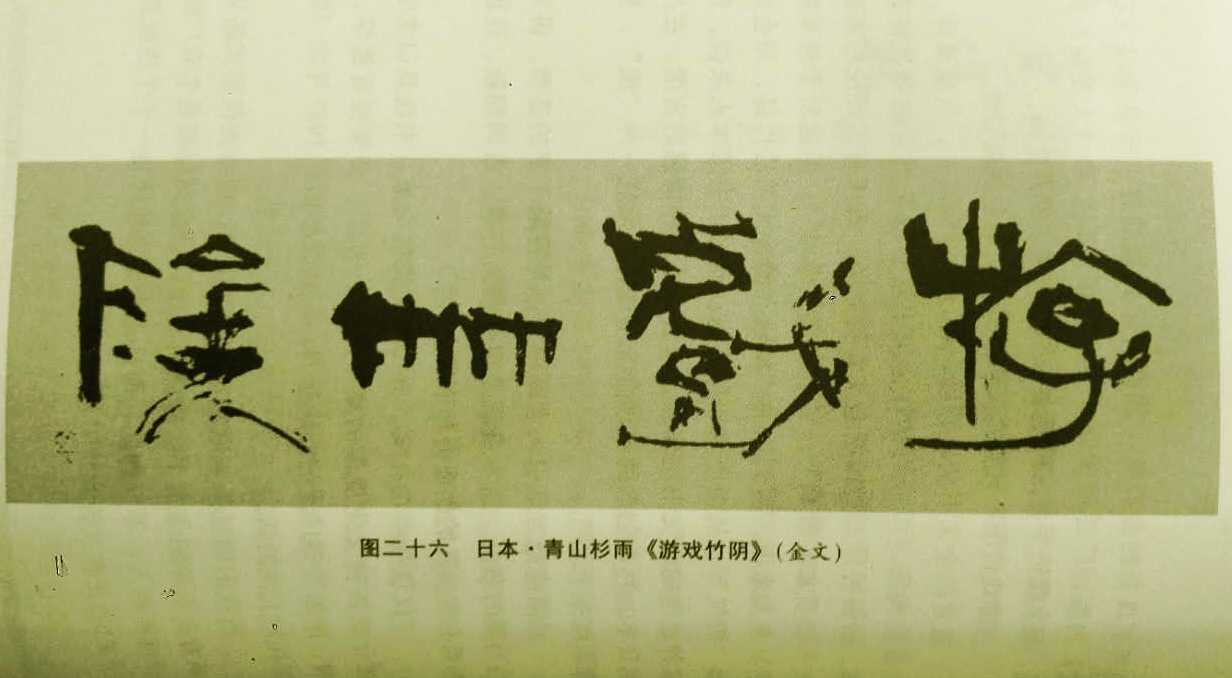 游戲竹陰
图二十六 日本·青山杉雨《游戏竹阴》(金文)